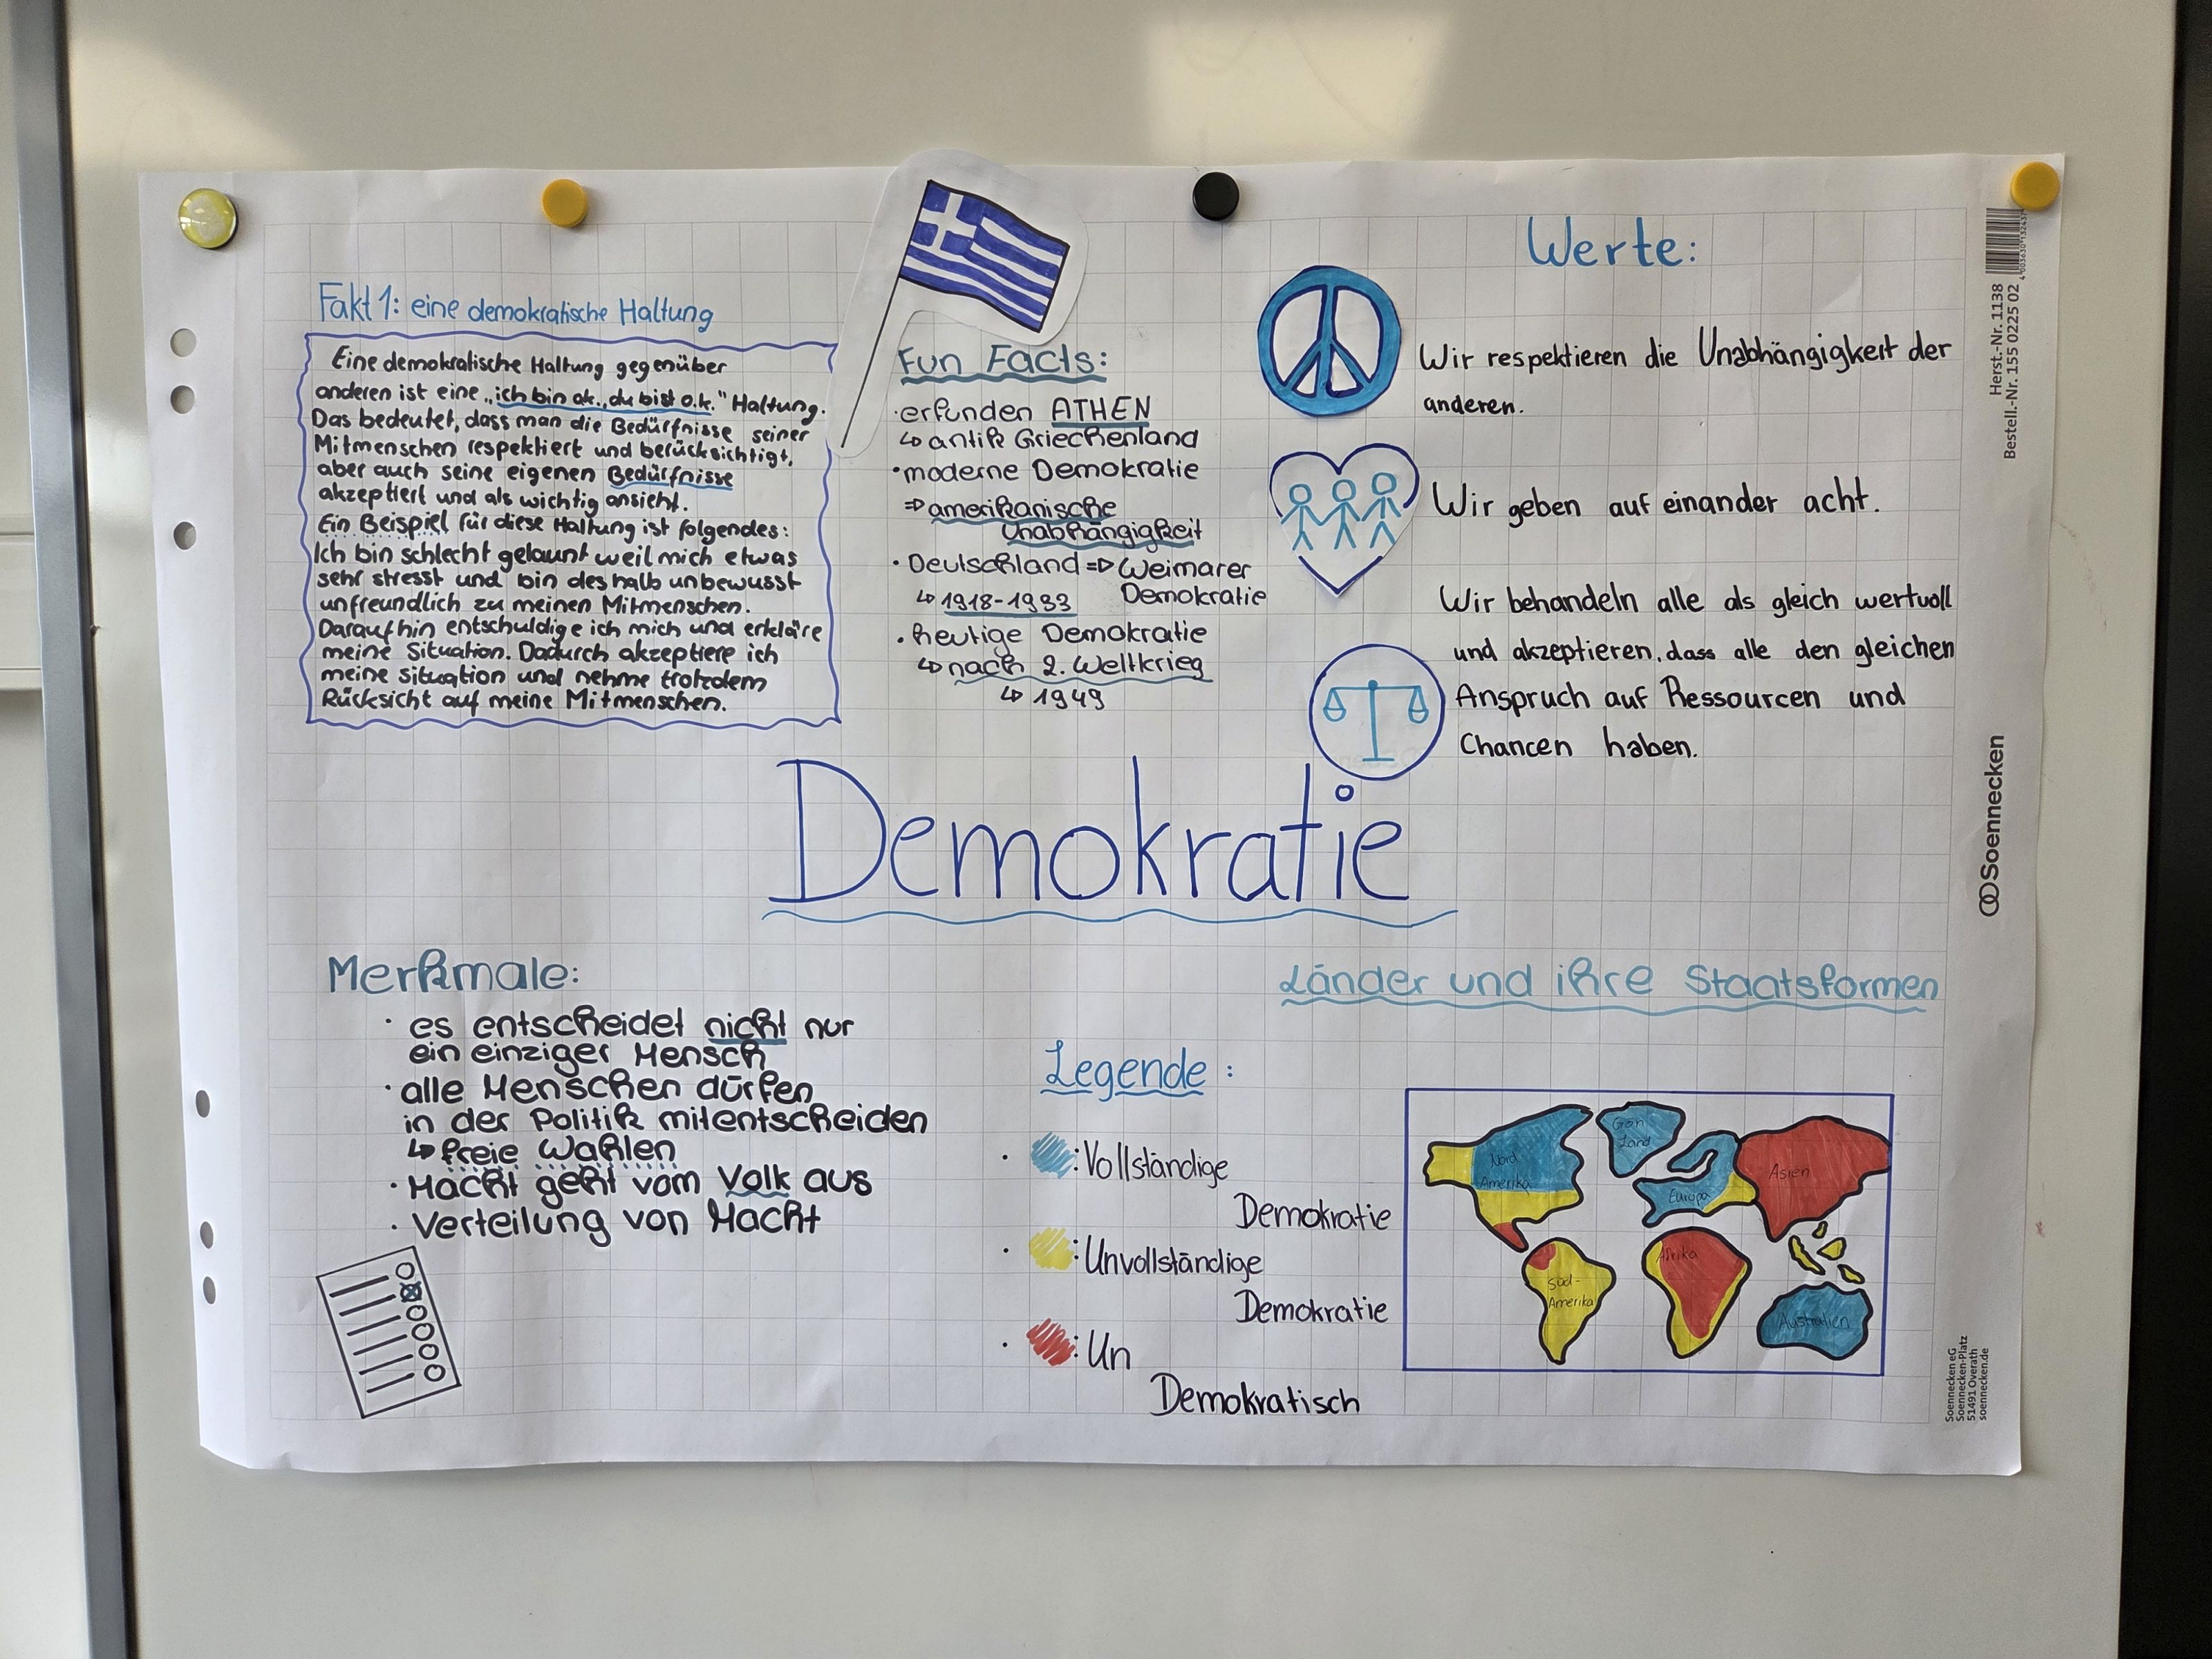 Fakt 1: eine demokratische Haltung
Eine demokratische Haltung gegenüber
anderen ist eine „ich bin ok., du bist o.k." Haltung.
Das bedeutet, dass man die Bedürfnisse seiner
Mitmenschen respektiert und berücksichtigt,
aber auch seine eigenen Bedürfnisse
akzeptiert und als wichtig ansieht.
Ein Beispiel für diese Haltung ist folgendes:
Ich bin schlecht gelaunt weil mich etwas
sehr stresst und bin deshalb unbewusst
unfreundlich zu meinen Mitmenschen.
Daraufhin entschuldige ich mich und erkläre
meine Situation. Dadurch akzeptiere ich
meine Situation und nehme trotzdem
Rücksicht auf meine Mitmenschen.
Fun Facts:
· erfunden ATHEN
↳ antik Griechenland
· moderne Demokratie
⇒ amerikanische
Unabhängigkeit
· Deutschland ⇒ Weimarer
↳ 1918-1933 Demokratie
· heutige Demokratie
↳ nach 2. Weltkrieg
↳ 1949
Werte:
Wir respektieren die Unabhängigkeit der
anderen.
Wir geben auf einander acht.
Wir behandeln alle als gleich wertvoll
und akzeptieren, dass alle den gleichen
Anspruch auf Ressourcen und
Chancen haben.
Demokratie
Merkmale:
· es entscheidet nicht nur
ein einziger Mensch
· alle Menschen dürfen
in der Politik mitentscheiden
↳ freie Wahlen
· Macht geht vom Volk aus
· Verteilung von Macht
Länder und ihre Staatsformen
Legende:
· : Vollständige
Demokratie
· : Unvollständige
Demokratie
· : Un
Demokratisch
Nord
Amerika
Grön
Land
Europa
Asien
Süd-
Amerika
Afrika
Australien
Herst.-Nr. 1138
Bestell.-Nr. 155 0225 02
Soennecken
Soennecken eG
Soennecken-Platz
51491 Overath
soennecken.de